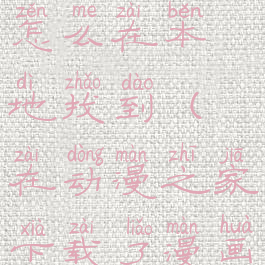 zěn me zài běn
怎么在本
dì zhǎo dào
地找到（
zài dòng màn zhī jiā
在动漫之家
xià zǎi liǎo màn huà
下载了漫画